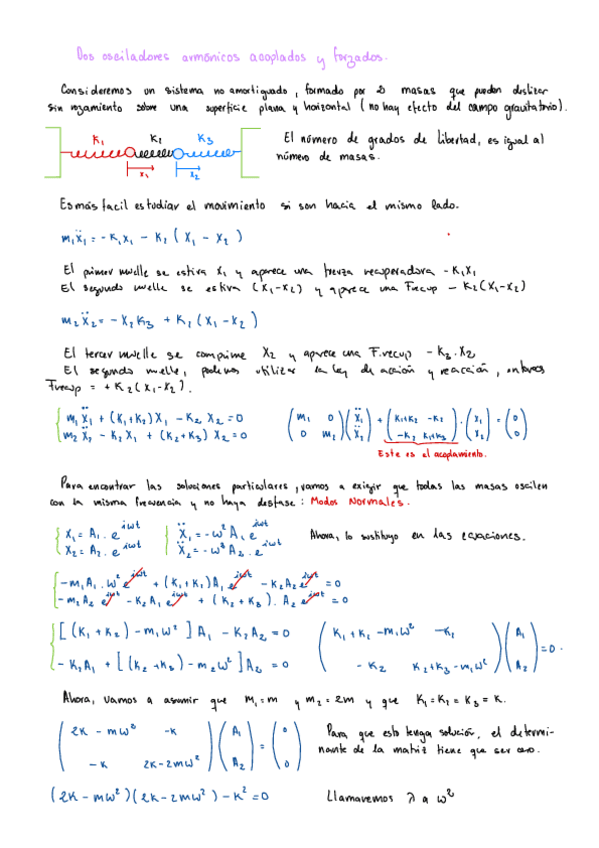 Dos osciladores armónicos acoplados y forzados.
Consideremos un sistema no amortiguado, formado por 2 masas que puedan deslizar
sin rozamiento sobre una superficie plana y horizontal (no hay efecto del campo gravitatorio).
K₁ K₂ K₃
x₁
El número de grados de libertad, es igual al
número de masas.
Es más facil estudiar el movimiento si son hacia el mismo lado.
m₁ẍ₁ = - K₁x₁ - K₂ (x₁ - x₂)
El primer muelle se estira x₁ y aparece una fuerza recuperadora -K₁x₁
El segundo muelle se estira (x₁-x₂) y aparece una Frecup - K₂(x₁-x₂)
m₂ẍ₂ = - x₂K₃ + K₂ (x₁ - x₂)
El tercer muelle se comprime x₂ y aparece una F.recup - K₃.x₂
El segundo muelle, podemos utilizar la ley de acción y reacción, entonces
Frecup = + K₂(x₁-x₂).
m₁ẍ₁ + (K₁+K₂)x₁ - K₂x₂ = 0
m₂ẍ₂ - K₂x₁ + (K₂+K₃)x₂ = 0
Este es el acoplamiento.
Para encontrar las soluciones particulares, vamos a exigir que todas las masas oscilen
con la misma frecuencia y no haya desfase: Modos Normales.
x₁ = A₁ . e^iωt ẍ₁ = -ω² A₁ e^iωt Ahora, lo sustituyo en las ecuaciones.
x₂ = A₂ . e^iωt
-m₁A₁ . ω² e^iωt + (K₁+K₂)A₁ e^iωt - K₂A₂ e^iωt = 0
[(K₁+K₂) - m₁ω²] A₁ - K₂A₂ = 0
- K₂A₁ + [(K₂+K₃) - m₂ω²] A₂ = 0
Ahora, vamos a asumir que m₁ = m y m₂ = 2m y que K₁ = K₂ = K₃ = K.
2K - mω² -K A₁ 0
-K 2K-2mω² A₂ = 0
Para que esto tenga solución, el determi-
nante de la matriz tiene que ser cero.
(2K - mω²)(2K - 2mω²) - K² = 0 Llamaremos λ a ω²